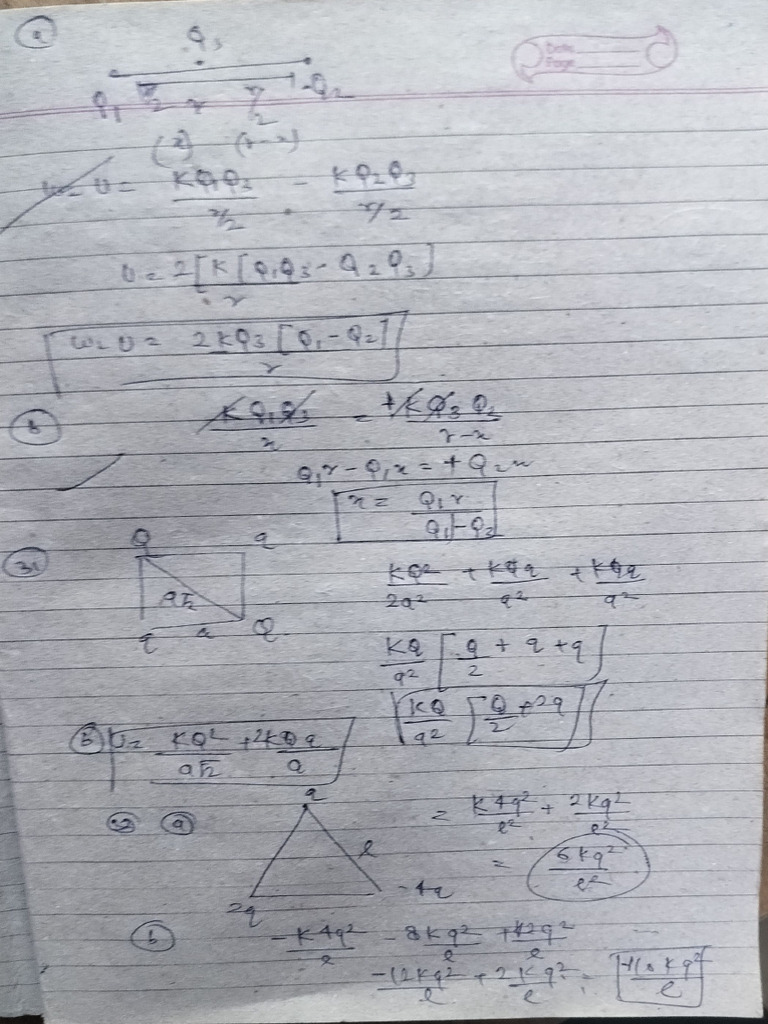 (a)
Q3
Date
Page
Q1 r/2 r r/2 -Q2
(x) (r-x)
U = KQ1Q3/r/2 - KQ2Q3/r/2
U = 2[K[Q1Q3 - Q2Q3]/r
W = U = 2KQ3[Q1-Q2]/r
KQ1Q3/x = +KQ3Q2/r-x
Q1r - Q1x = + Q2x
x = Q1r/Q1+Q2
3.
Q q
a√2
q a Q
KQ²/2a² + KQq/a² + KQq/a²
KQ/a² [Q/2 + q + q]
KQ/a² [Q/2 + 2q]
(b) U = KQ²/a√2 + 2KQq/a
(a)
q
l
2q -4q
= K4q²/l² + 2Kq²/l²
= 6Kq²/l²
(b) -K4q²/l - 8Kq²/l + K2q²/l
-12Kq²/l + 2Kq²/l = -10Kq²/l